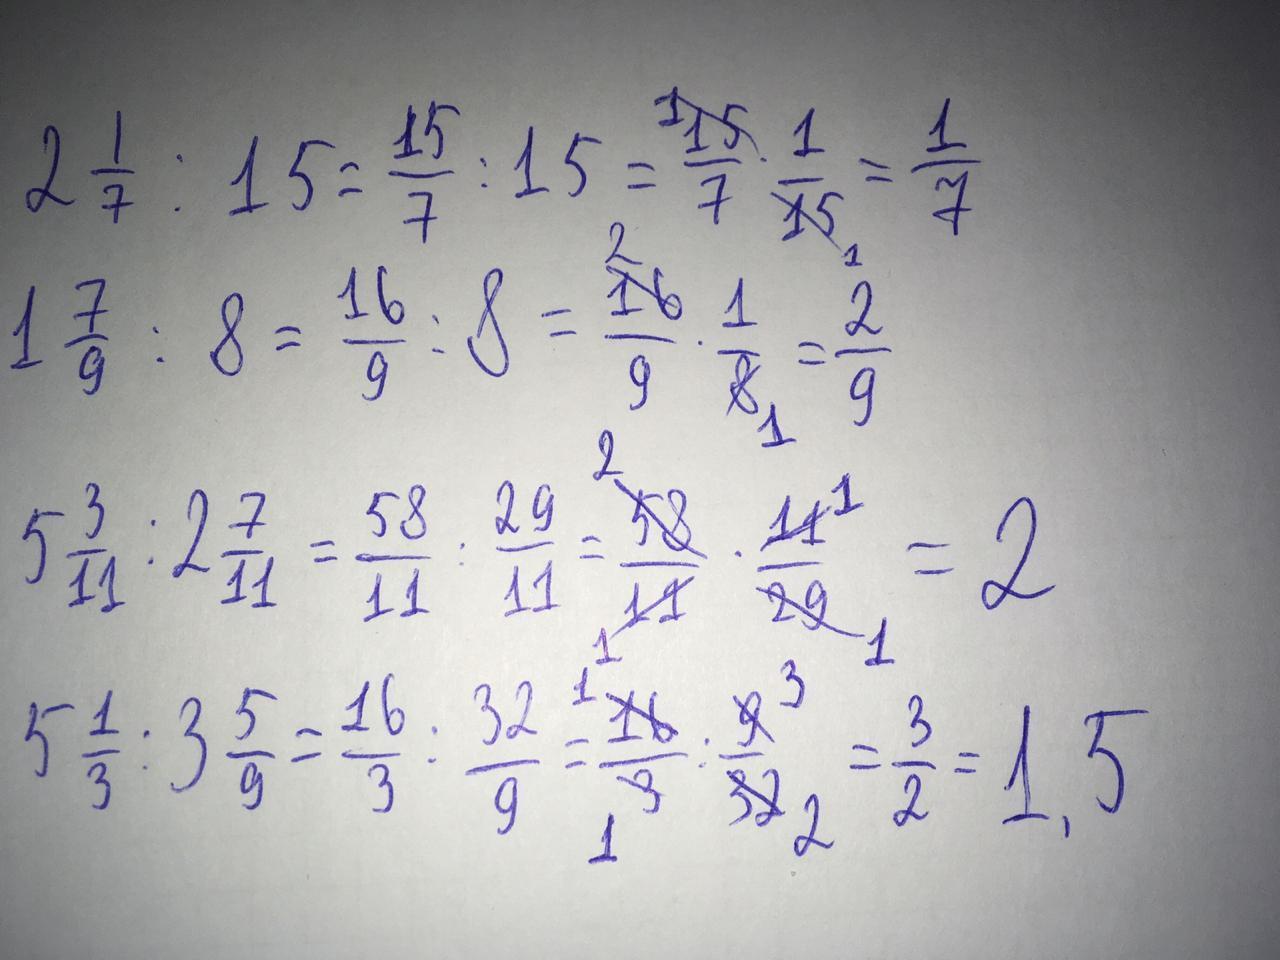 2 1/7 : 15 = 15/7 : 15 = 15/7 · 1/15 = 1/7
1 7/9 : 8 = 16/9 : 8 = 16/9 · 1/8 = 2/9
5 3/11 : 2 7/11 = 58/11 : 29/11 = 58/11 · 11/29 = 2
5 1/3 : 3 5/9 = 16/3 : 32/9 = 16/3 : 9/32 = 3/2 = 1,5